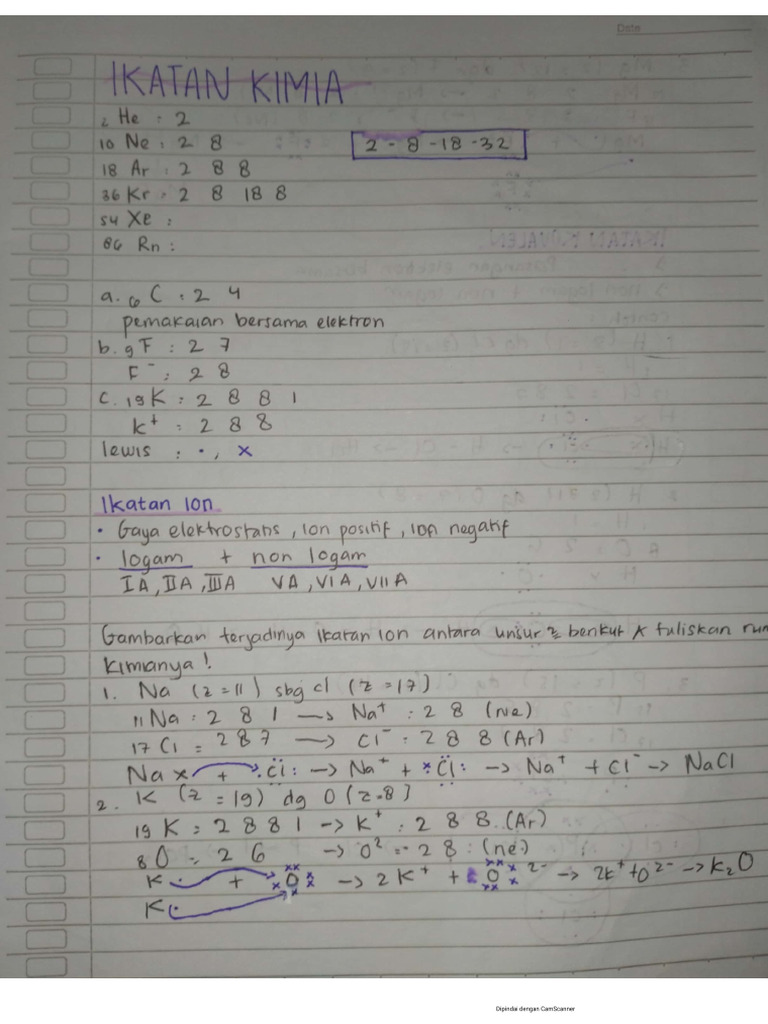 Date
IKATAN KIMIA
2 He : 2
10 Ne : 2 8
2 - 8 - 18 - 32
18 Ar : 2 8 8
36 Kr : 2 8 18 8
54 Xe :
86 Rn :
a. 6 C : 2 4
pemakaian bersama elektron
b. 9 F : 2 7
F⁻ : 2 8
C. 19 K : 2 8 8 1
K⁺ : 2 8 8
lewis : •, x
Ikatan Ion
• Gaya elektrostatis, Ion positif, Ion negatif
• logam + non logam
IA, IIA, IIIA VA, VIA, VIIA
Gambarkan terjadinya ikatan ion antara unsur 2 berikut & tuliskan rum
kimianya !
1. Na (z = 11) sbg cl (z = 17)
11 Na : 2 8 1 → Na⁺ : 2 8 (Ne)
17 Cl = 2 8 7 → Cl⁻ : 2 8 8 (Ar)
Na x + •Cl: → Na⁺ + x Cl: → Na⁺ + Cl⁻ → NaCl
2. K (z = 19) dg O (z = 8)
19 K = 2 8 8 1 → K⁺ : 2 8 8 (Ar)
8 O = 2 6 → O²⁻ = 2 8 : (ne)
K • + xx O xx → 2 K⁺ + O ²⁻ → 2K⁺ + O²⁻ → K₂O
K •
Dipindai dengan CamScanner